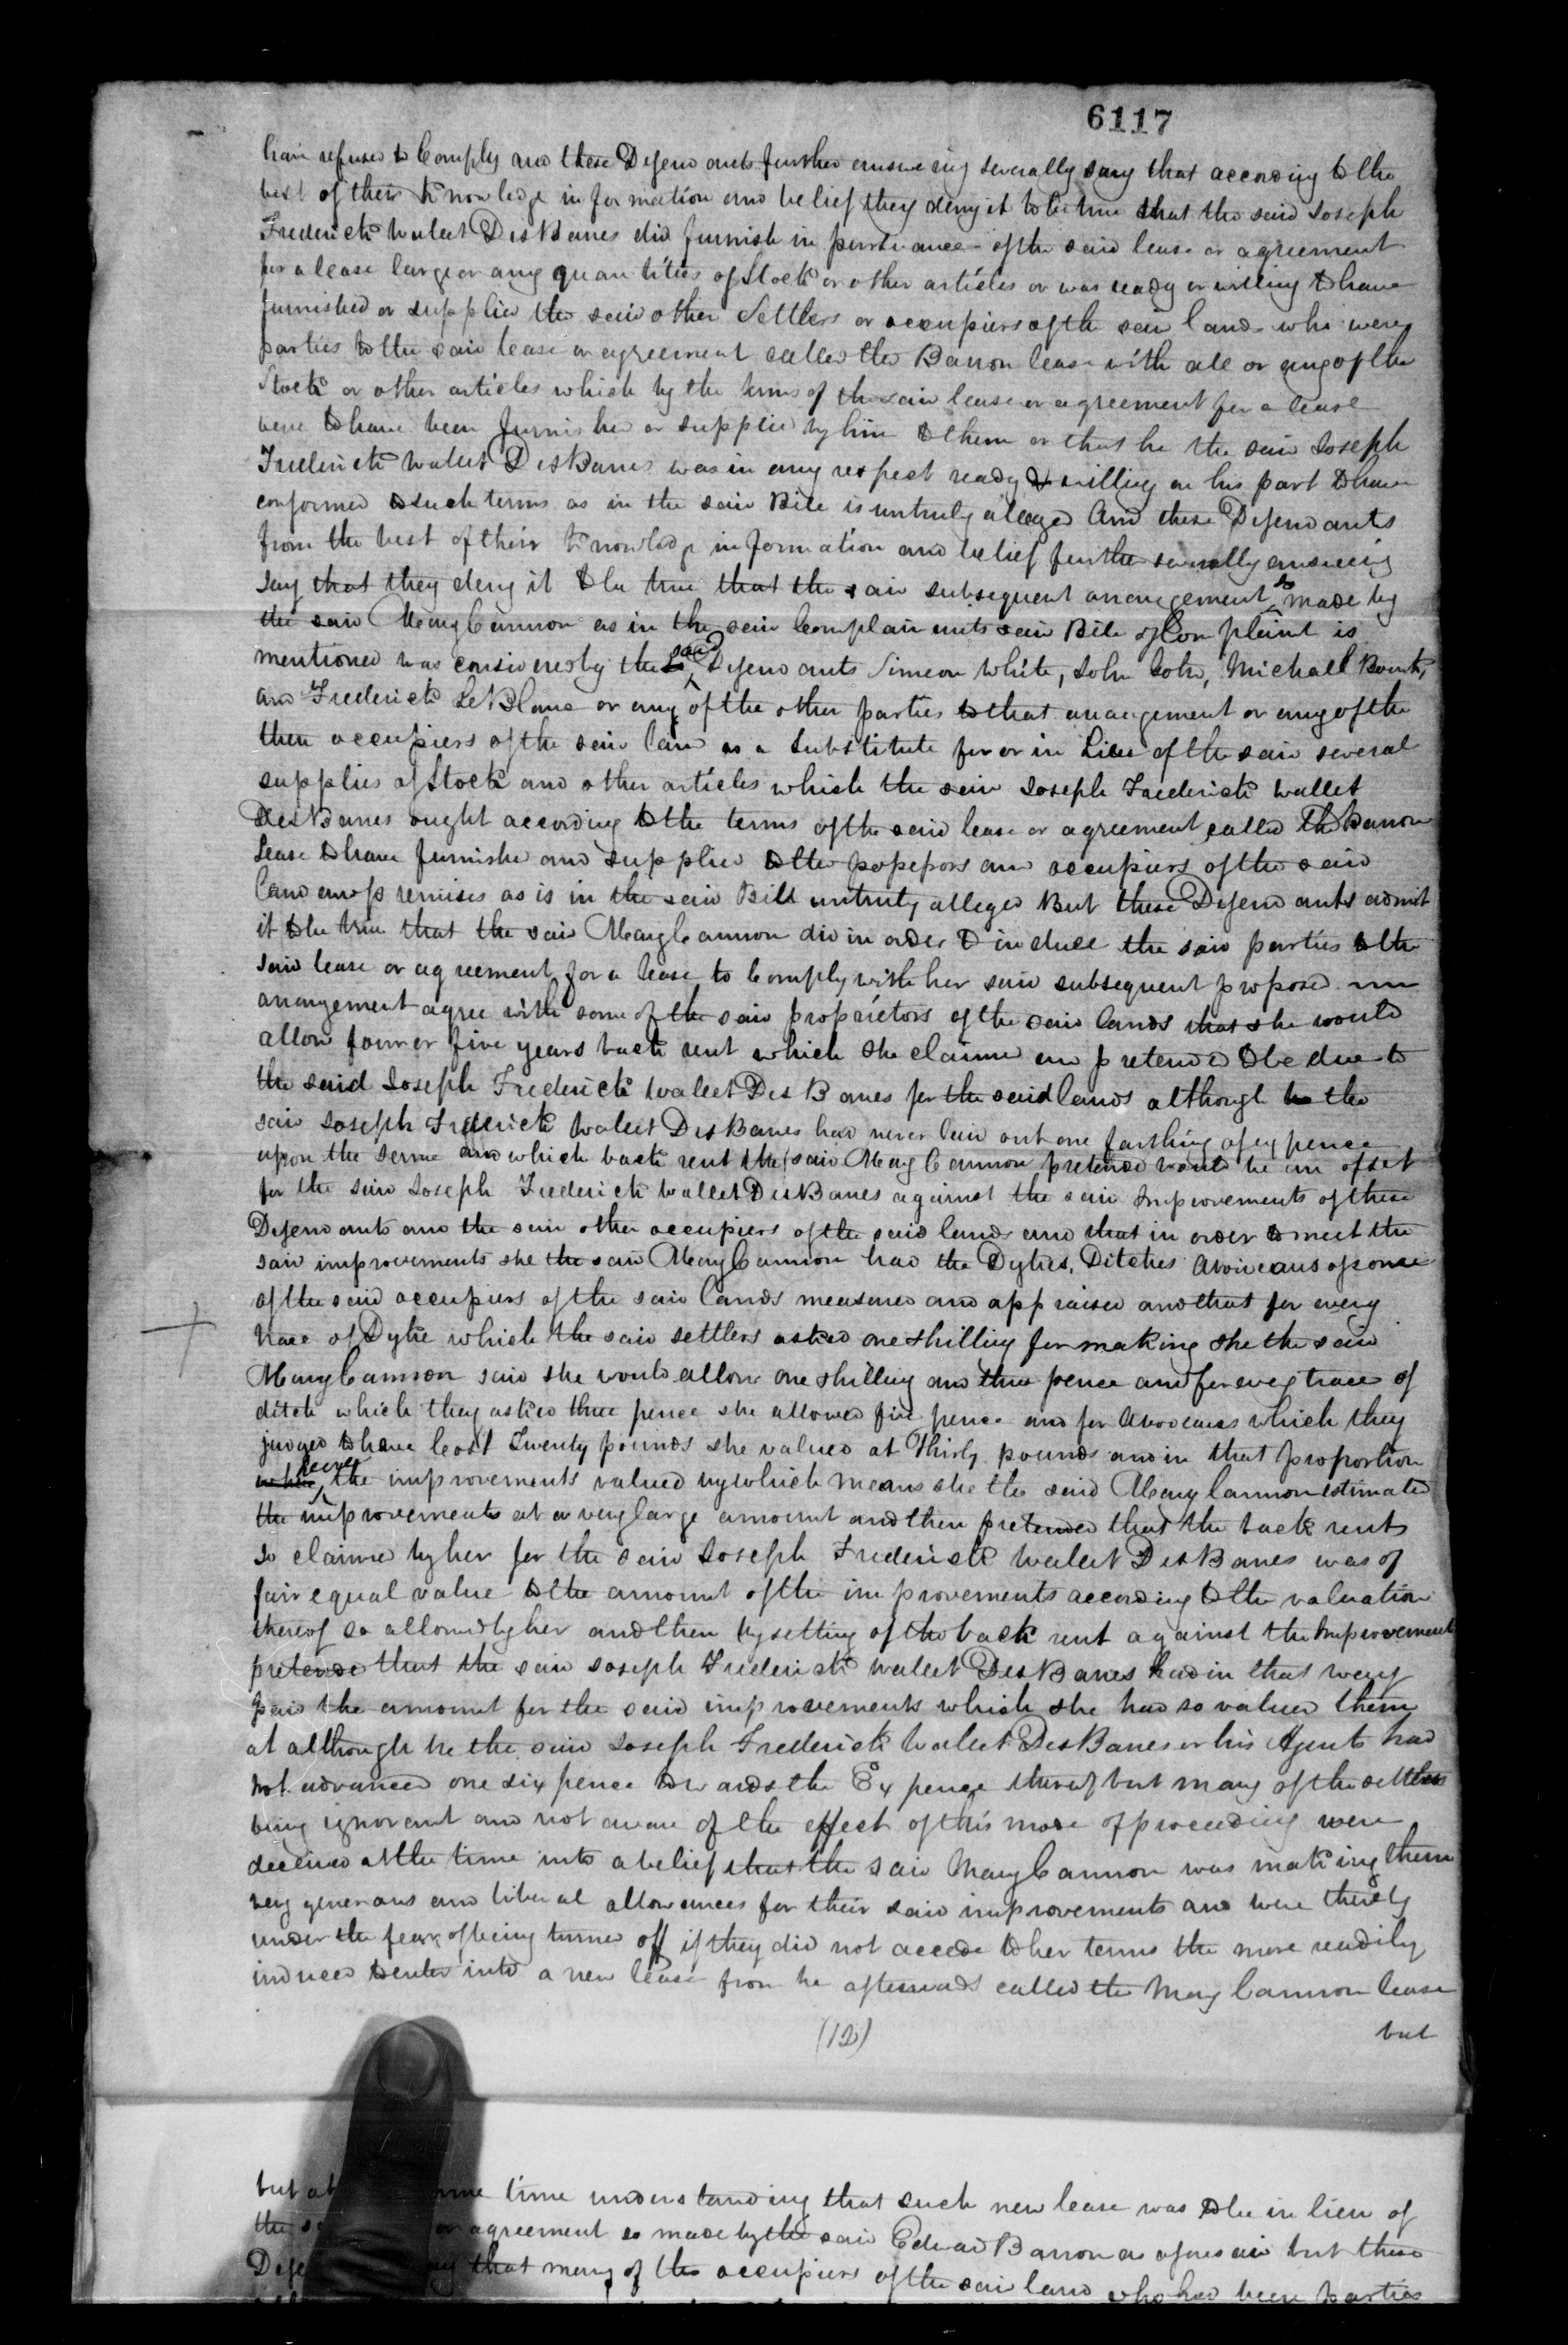 6117
have refused to Comply and these Defendants further answering severally say that according to the
best of their Knowledge information and belief they deny it to be true that the said Joseph
Frederick Wallet DesBarres did furnish in pursuance of the said lease or agreement
for a lease large or any quantities of Stock or other articles or was ready or willing to have
furnished or supplied the said other Settlers or occupiers of the said lands who were
parties to the said lease or agreement called the Barron lease with all or any of the
Stock or other articles which by the terms of the said lease or agreement for a lease
were to have been furnished or supplied by him to them or that he the said Joseph
Frederick Wallet DesBarres was in any respect ready & willing on his part to have
conformed to such terms as in the said Bill is untruly alleged And these Defendants
from the best of their Knowledge information and belief further severally answering
say that they deny it to be true that the said subsequent arrangement so made by
the said Mary Cannon as in the said Complainants said Bill of Complaint is
mentioned was considered by the said Defendants Simeon White, John John, Michall Bourk,
and Frederick LeBlanc or any of the other parties to that arrangement or any of the
then occupiers of the said land as a Substitute for or in Lieu of the said several
supplies of Stock and other articles which the said Joseph Frederick Wallet
DesBarres ought according to the terms of the said lease or agreement called The Barron
Lease to have furnished and supplied to the possessors and occupiers of the said
land and premises as is in the said Bill untruly alleged But these Defendants admit
it to be true that the said Mary Cannon did in order to induce the said parties to the
said lease or agreement for a lease to Comply with her said subsequent proposed
arrangement agree with some of the said proprietors of the said lands that she would
allow four or five years back rent which she claimed and pretended to be due to
the said Joseph Frederick Wallet DesBarres for the said lands although the
said Joseph Frederick Wallet DesBarres had never laid out one farthing of expence
upon the same and which back rent the said Mary Cannon pretended would be an ofset
for the said Joseph Frederick Wallet DesBarres against the said Improvements of these
Defendants and the said other occupiers of the said lands and that in order to meet the
said improvements she the said Mary Cannon had the Dykes, Ditches Aboideaus of some
of the said occupiers of the said lands measured and appraised and that for every
trace of Dyke which the said settlers asked one shilling for making she the said
Mary Cannon said she would allow one shilling and three pence and for every trace of
ditch which they asked three pence she allowed five pence and for Aboideaus which they
judged to have cost Twenty pounds she valued at Thirty pounds and in that proportion
were the improvements valued by which means she the said Mary Cannon estimated
the improvements at a very large amount and then pretended that the back rents
so claimed by her for the said Joseph Frederick Wallet DesBarres was of
fair equal value to the amount of the improvements according to the valuation
thereof so allowed by her and then by setting of the back rent against the Improvements
pretended that the said Joseph Frederick Wallet DesBarres had in that way
paid the amount for the said improvements which she had so valued them
at although he the said Joseph Frederick Wallet DesBarres or his Agents had
not advanced one six pence towards the Expence thereof but many of the settlers
being ignorant and not aware of the effect of this mode of proceeding were
deceived at the time into a belief that the said Mary Cannon was making them
very generous and liberal allowances for their said improvements and were thereby
under the fear of being turned off if they did not accede to her terms the more readily
induced to enter into a new lease from her afterwards called the Mary Cannon lease
(12)
but
but at time understanding that such new lease was to be in lieu of
the or agreement so made by the said Edward Barron as aforesaid but these
that many of the occupiers of the said land who had been parties